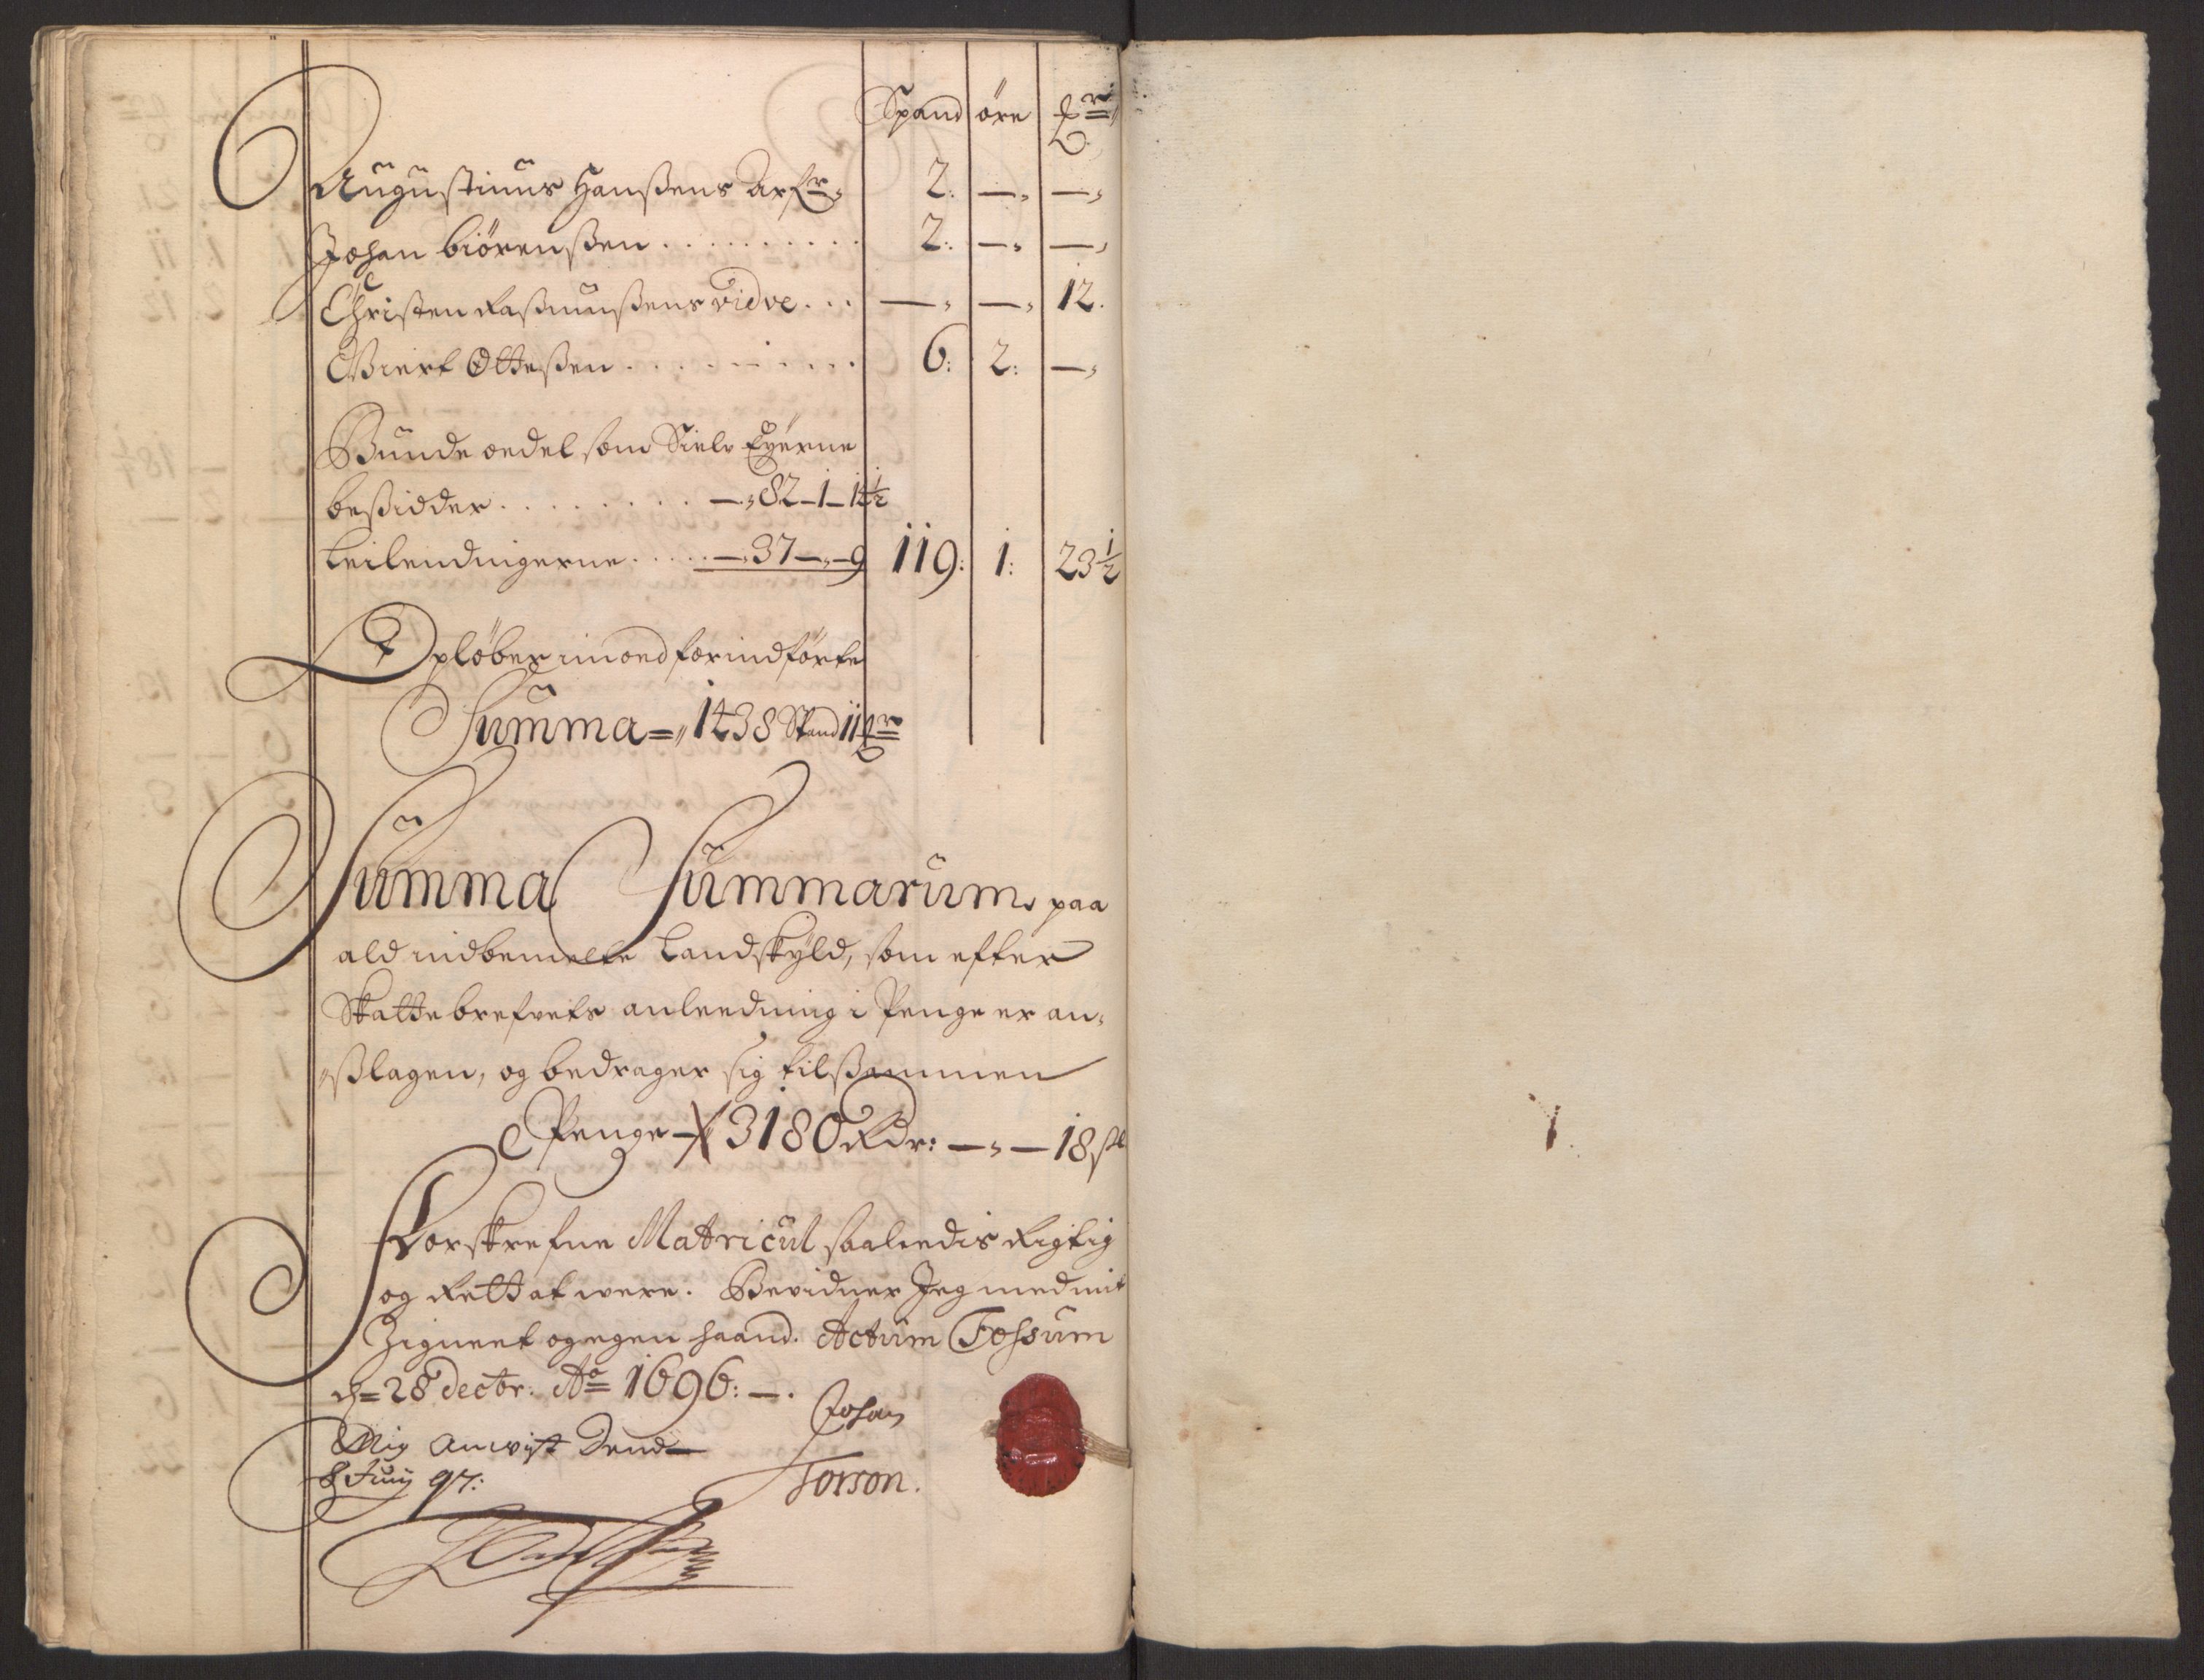 Spand öre
Augustinus Hanßens Arf: 2: — —
Johan biörenßen 2: — —
Christen Raßmußens vidve — — 12.
Giert Otteßen 6: 2: —
Bunde oedel som Sielv Eyerne
beßidder — 82 — 1 — 14½
Leilendingerne — 37 — 9 119: 1: 23½
Opløber imod forindförte
Summa = 1438 Spand 11
Summa Summarum paa
ald indbemelte Landskyld, som efter
Skattebrefvets anleedning i Penge er an-
ßlagen, og bedrager sig tilßammen
Penge 3180 Rdr: — 18 sk
Forskrefne Matricul saaledis Rigtig
og Rett at were. Bevidner Jeg med mit
Zignet og egen haand. Actum Foßum
d= 28 decbr. Ao 1696: —.
Johan
Mig Anvist Dend
8 Junij 97:
Torson.